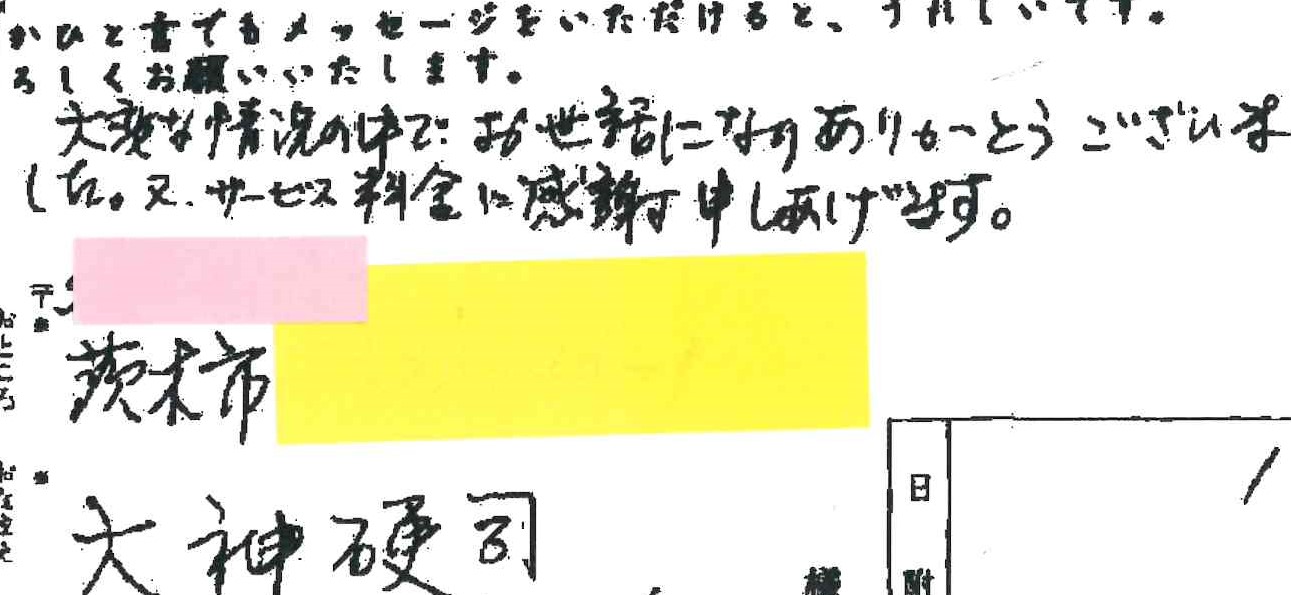 かひと言でもメッセージをいただけると、うれしいです。
ろしくお願いいたします。
大変な情況の中で お世話になりありがとうございま
した。又、サービス料金に感謝申しあげます。
〒
茨木市
大神硬司
様
日
附